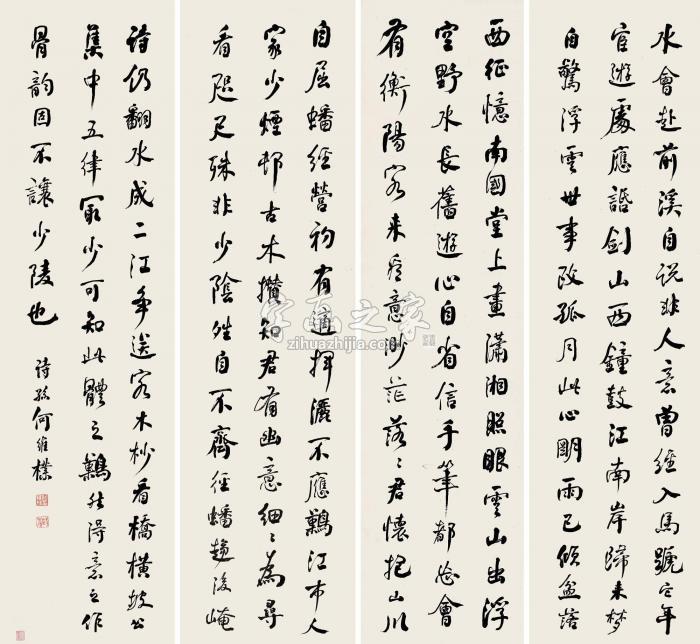 水會赴前溪自説非人意曾經入馬蹏它年
宦遊處應劍山西鐘鼓江南岸歸来夢
自驚浮雲世事改孤月此心明雨已傾盆落
西征憶南國堂上畫瀟湘照眼雲山出浮
空野水長舊遊心自省信手筆都忘會
有衡陽客来看意渺茫落〻君懷抱山川
自屈蟠經營初有適揮灑不應難江市人
家少煙邨古木攢知君有幽意細〻為尋
看咫尺殊非少陰晴自不齊徑蟠趨後崦
詩仍翻水成二江爭送客木杪看橋橫坡公
集中五律冣少可知此體之難然得意之作
骨韵固不讓少陵也
詩孫何維樸
字画之家
zihuazhijia.com